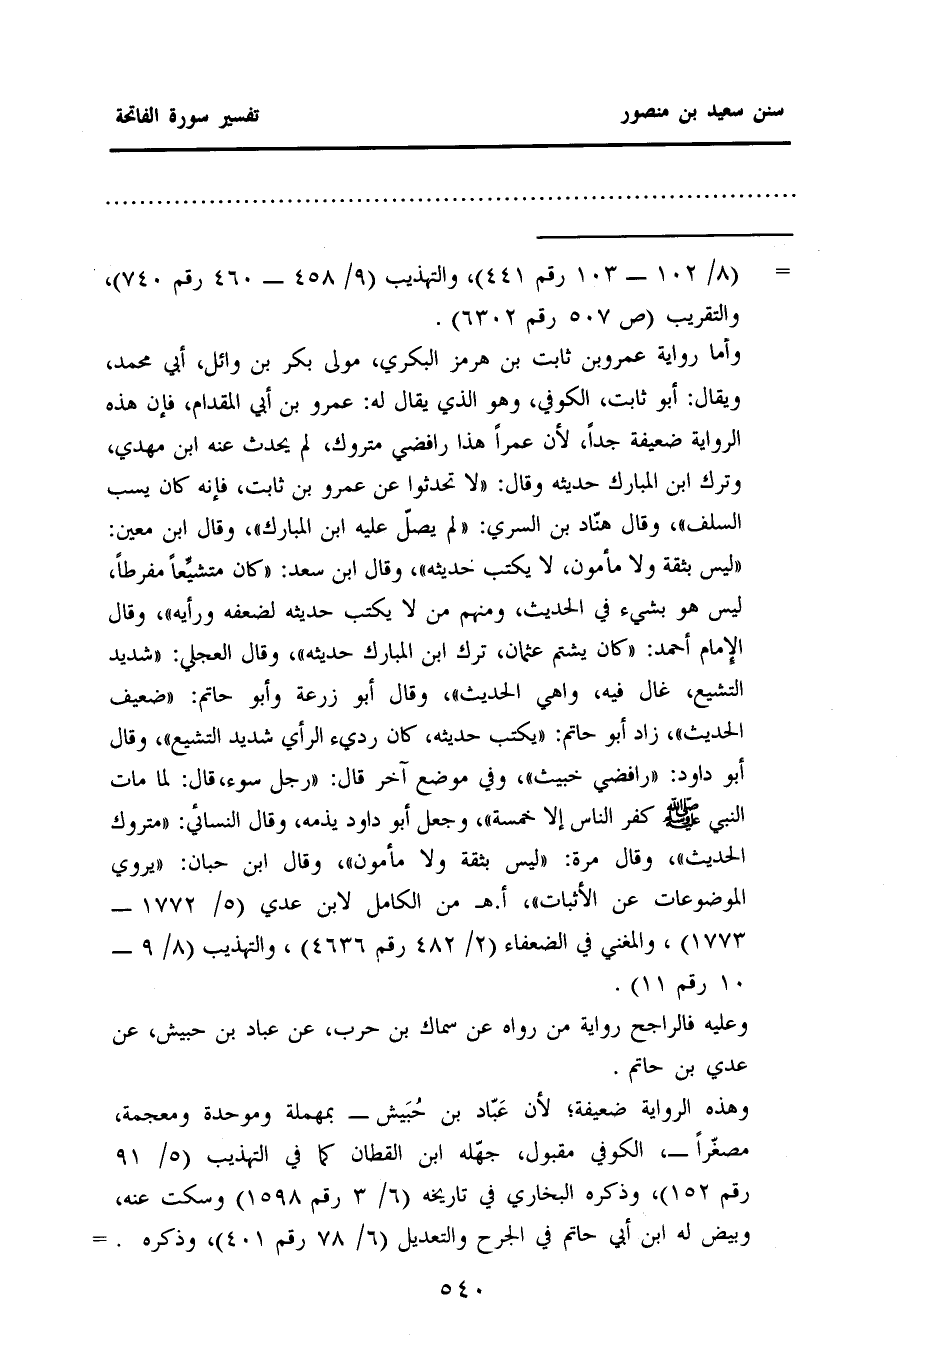 سنن سعيد بن منصور تفسير سورة الفاتحة
= (٨/ ١٠٢ ــ ١٠٣ رقم ٤٤١)، والتهذيب (٩/ ٤٥٨ ــ ٤٦٠ رقم ٧٤٠)،
والتقريب (ص ٥٠٧ رقم ٦٣٠٢) .
وأما رواية عمروبن ثابت بن هرمز البكري، مولى بكر بن وائل، أبي محمد،
ويقال: أبو ثابت، الكوفي، وهو الذي يقال له: عمرو بن أبي المقدام، فإن هذه
الرواية ضعيفة جداً، لأن عمراً هذا رافضي متروك، لم يحدث عنه ابن مهدي،
وترك ابن المبارك حديثه وقال: «لا تحدثوا عن عمرو بن ثابت، فإنه كان يسب
السلف»، وقال هنّاد بن السري: «لم يصلّ عليه ابن المبارك»، وقال ابن معين:
«ليس بثقة ولا مأمون، لا يكتب حديثه»، وقال ابن سعد: «كان متشيّعاً مفرطاً،
ليس هو بشيء في الحديث، ومنهم من لا يكتب حديثه لضعفه ورأيه»، وقال
الإمام أحمد: «كان يشتم عثمان، ترك ابن المبارك حديثه»، وقال العجلي: «شديد
التشيع، غال فيه، واهي الحديث»، وقال أبو زرعة وأبو حاتم: «ضعيف
الحديث»، زاد أبو حاتم: «يكتب حديثه، كان رديء الرأي شديد التشيع»، وقال
أبو داود: «رافضي خبيث»، وفي موضع آخر قال: «رجل سوء، قال: لما مات
النبي ﷺ كفر الناس إلا خمسة»، وجعل أبو داود يذمه، وقال النسائي: «متروك
الحديث»، وقال مرة: «ليس بثقة ولا مأمون»، وقال ابن حبان: «يروي
الموضوعات عن الأثبات»، أ.هـ من الكامل لابن عدي (٥/ ١٧٧٢ ــ
١٧٧٣) ، والمغني في الضعفاء (٢/ ٤٨٢ رقم ٤٦٣٦) ، والتهذيب (٨/ ٩ ــ
١٠ رقم ١١) .
وعليه فالراجح رواية من رواه عن سماك بن حرب، عن عباد بن حبيش، عن
عدي بن حاتم .
وهذه الرواية ضعيفة؛ لأن عَبّاد بن حُبَيش ــ بمهملة وموحدة ومعجمة،
مصغّراً ــ، الكوفي مقبول، جهّله ابن القطان كما في التهذيب (٥/ ٩١
رقم ١٥٢)، وذكره البخاري في تاريخه (٦/ ٣ رقم ١٥٩٨) وسكت عنه،
وبيض له ابن أبي حاتم في الجرح والتعديل (٦/ ٧٨ رقم ٤٠١)، وذكره . =
٥٤٠